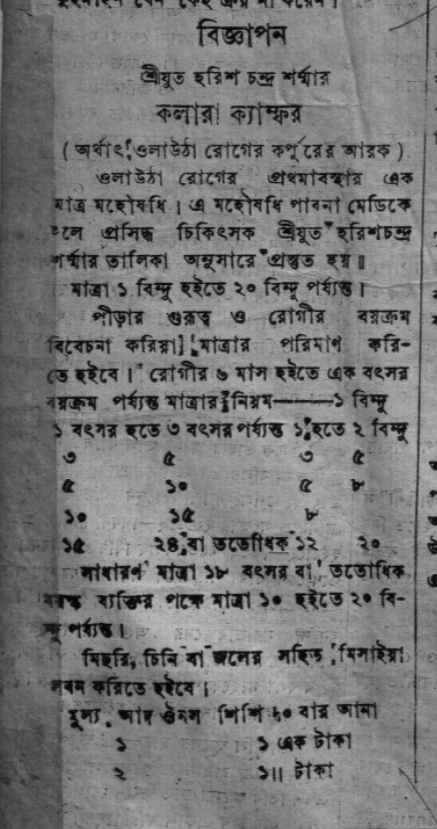 বিজ্ঞাপন
শ্রীযুত হরিশ চন্দ্র শর্ম্মার
কলারা ক্যাম্ফর
( অর্থাৎ ওলাউঠা রোগের কর্পূরের আরক )
ওলাউঠা রোগের প্রথমাবস্থার এক
মাত্র মহৌষধি । এ মহৌষধি পাবনা মেডিকে
প্রসিদ্ধ চিকিৎসক শ্রীযুত হরিশচন্দ্র
শর্ম্মার তালিকা অনুসারে প্রস্তুত হয় ॥
মাত্রা ১ বিন্দু হইতে ২০ বিন্দু পর্য্যন্ত ।
পীড়ার গুরুত্ব ও রোগীর বয়ক্রম
বিবেচনা করিয়া মাত্রার পরিমাণ করি-
তে হইবে । রোগীর ৬ মাস হইতে এক বৎসর
বয়ক্রম পর্য্যন্ত মাত্রার নিয়ম———১ বিন্দু
১ বৎসর হতে ৩ বৎসর পর্য্যন্ত ১ হতে ২ বিন্দু
৩ ৫ ৩ ৫
৫ ১০ ৫ ৮
১০ ১৫ ৮
১৫ ২৪ বা ততোধিক ১২ ২০
সাধারণ মাত্রা ১৮ বৎসর বা ততোধিক
বয়স্ক ব্যক্তির পক্ষে মাত্রা ১০ হইতে ২০ বি-
ন্দু পর্য্যন্ত ।
মিছরি, চিনি বা জলের সহিত মিসাইয়া
সেবন করিতে হইবে ।
মূল্য আদ ঔনস শিশি ৸০ বার আনা
১ ১ এক টাকা
২ ১॥ টাকা